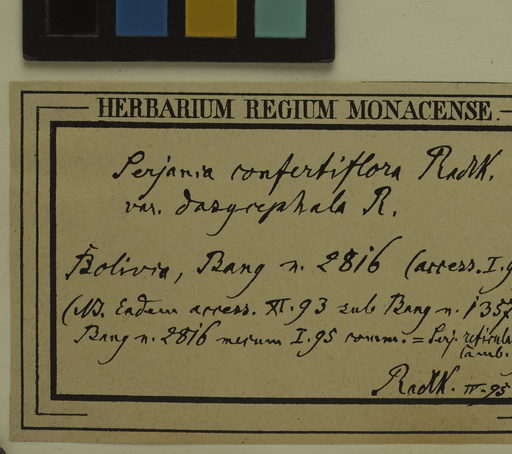 HERBARIUM REGIUM MONACENSE.
Serjania confertiflora Radlk.
var. dasycephala R.
Bolivia, Bang n. 2816 (access. I.9
(NB. Eadem access. XI.93 sub Bang n. 1357
Bang n. 2816 mecum I.95 comm. = Serj. reticula
(amb.
Radlk. IV.95